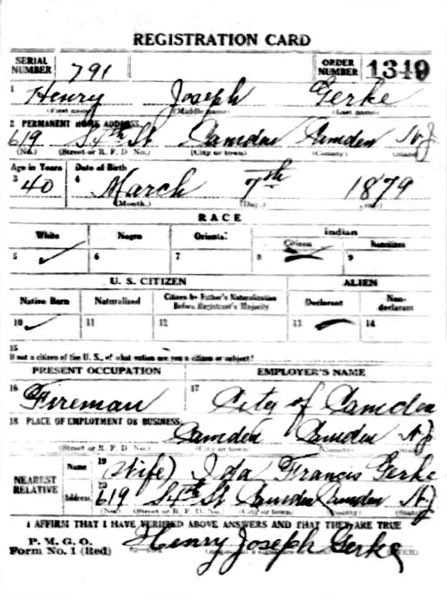 REGISTRATION CARD
SERIAL NUMBER 791 ORDER NUMBER 1349
1 Henry Joseph Gerke
(First name) (Middle name) (Last name)
2 PERMANENT HOME ADDRESS:
619 S 4th St Camden Camden N J
(No.) (Street or R. F. D. No.) (City or town) (County) (State)
Age in Years Date of Birth
3 40 4 March 7th 1879
(Month.) (Day.) (Year.)
RACE
White Negro Oriental Indian
Citizen Noncitizen
5 ✓ 6 7 8 9
U. S. CITIZEN ALIEN
Native Born Naturalized Citizen by Father's Naturalization Before Registrant's Majority Declarant Non-declarant
10 ✓ 11 12 13 14
15
If not a citizen of the U. S., of what nation are you a citizen or subject?
PRESENT OCCUPATION EMPLOYER'S NAME
16 Fireman 17 City of Camden
18 PLACE OF EMPLOYMENT OR BUSINESS:
Camden Camden N J
(No.) (Street or R. F. D. No.) (City or town) (County) (State)
NEAREST RELATIVE Name 19 (Wife) Ida Francis Gerke
Address 20 619 S 4th St Camden Camden N J
I AFFIRM THAT I HAVE VERIFIED ABOVE ANSWERS AND THAT THEY ARE TRUE
P. M. G. O.
Form No. 1 (Red) Henry Joseph Gerke